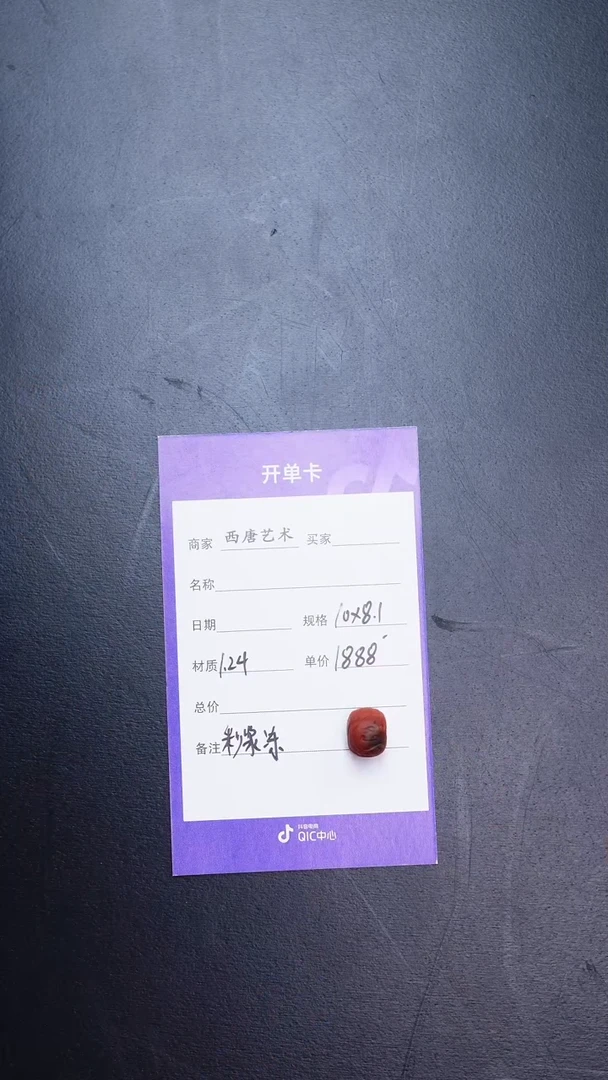 开单卡
商家 西唐艺术 买家
名称
日期 规格 10x8.1
材质 1.24 单价 1888
总价
备注
抖音电商
QIC中心